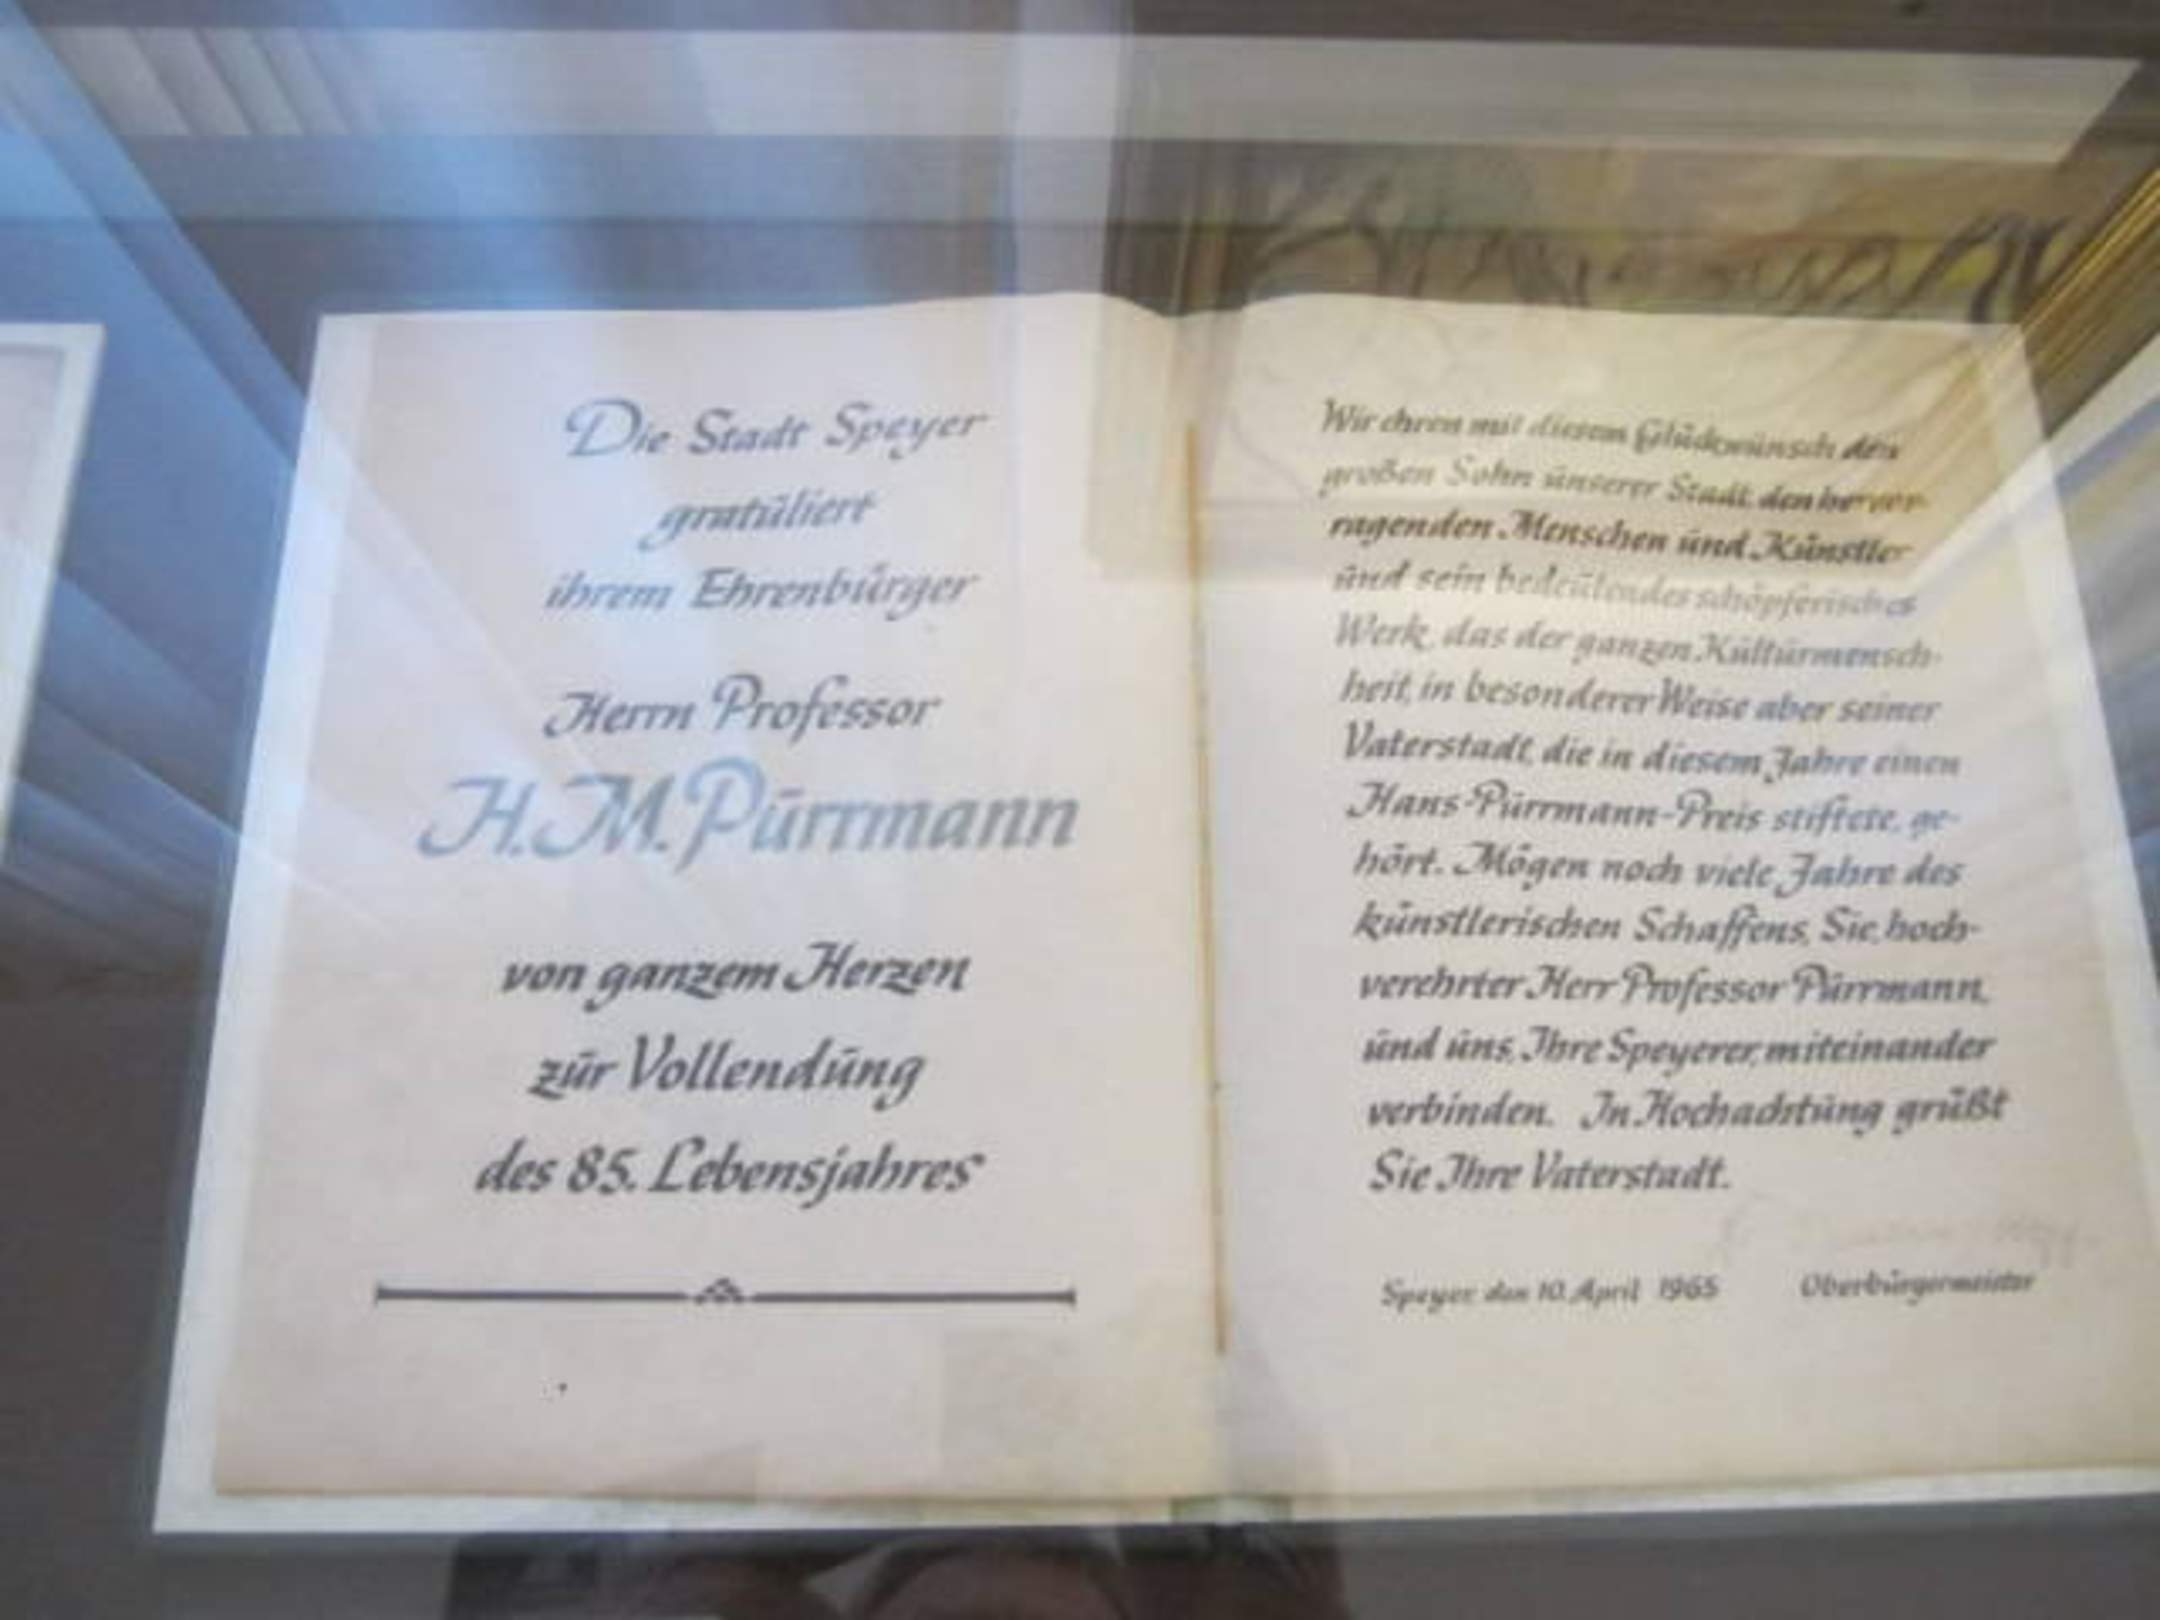 Die Stadt Speyer
gratuliert
ihrem Ehrenbürger
Herrn Professor
H.M. Purrmann
von ganzem Herzen
zur Vollendung
des 85. Lebensjahres
Wir ehren mit diesem Glückwunsch den
großen Sohn unserer Stadt, den hervor-
ragenden Menschen und Künstler
und sein bedeutendes schöpferisches
Werk, das der ganzen Kulturmensch-
heit, in besonderer Weise aber seiner
Vaterstadt, die in diesem Jahre einen
Hans-Purrmann-Preis stiftete, ge-
hört. Mögen noch viele Jahre des
künstlerischen Schaffens, Sie, hoch-
verehrter Herr Professor Purrmann,
und uns, Ihre Speyerer, miteinander
verbinden. In Hochachtung grüßt
Sie Ihre Vaterstadt.
Speyer, den 10. April 1965 Oberbürgermeister